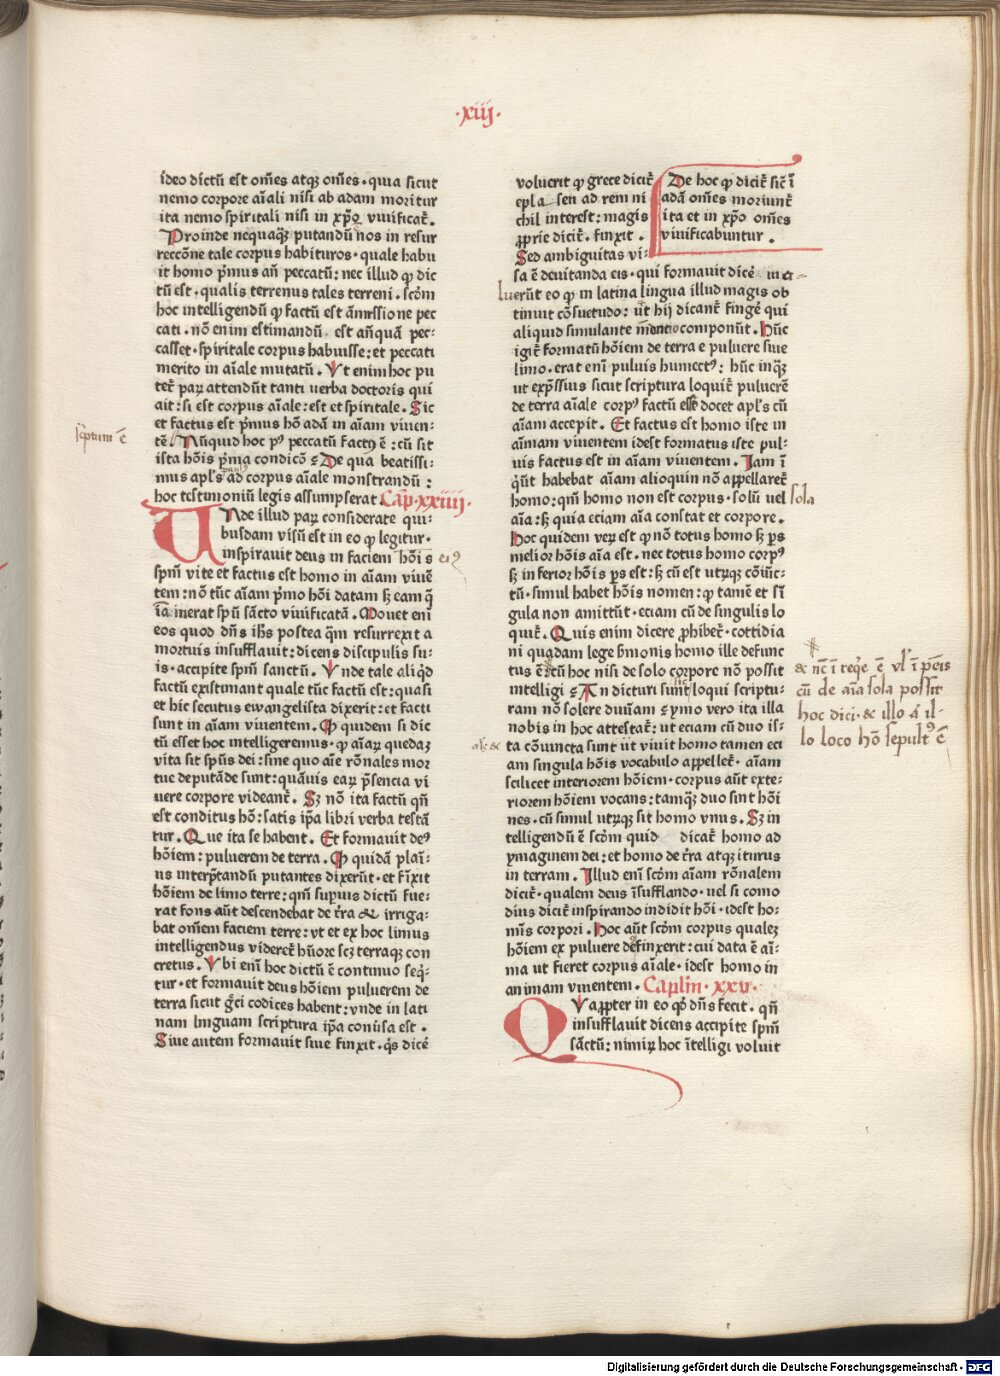 ·xiij·
ideo dictū est om̄es atqꝫ om̄es · quia sicut
nemo corpore aīali nisi ab adam moritur
ita nemo spiritali nisi in xp̄o viuificat̄ .
Proinde nequaqꝫ putandū nos in resur
reccōne tale corpus habituros · quale habu
it homo pⁱmus an̄ peccatū : nec illud ꝙ dic
tū est · qualis terrenus tales terreni . scd̄m
hoc intelligendū ꝙ factū est āmissione pec
cati . nō enim estimandū est an̄quā pec-
casset · spiritale corpus habuisse : et peccati
merito in aīale mutatū . Vt enim hoc pu
tet̄ paꝝ attendūt tanti verba doctoris qui
ait : si est corpus aīale : est et spiritale . Sic
et factus est pⁱmus hō adā in aīam viuen-
tē . Nūquid hoc pꝰ peccatū factū ē : cū sit
sc̄ptum ē
ista hōis pⁱma condicō ⸮ De qua beatissi-
mus apl̄s ad corpus aīale monstrandū :
hoc testimoniū legis assumpserat . Cap̄ · xxiiij ·
UNde illud paꝝ considerate qui-
busdam visū est in eo ꝙ legitur ·
inspirauit deus in faciem hōis eiꝰ
spm̄ vite et factus est homo in aīam viuē
tem : nō tūc aīam pⁱmo hōi datam sꝫ eam q̄
iā inerat spū sācto viuificatā . Mouet enī
eos quod dn̄s ihs̄ postea qm̄ resurrexit a
mortuis insufflauit : dicens discipulis su-
is · accipite spm̄ sanctū . Vnde tale aliqⁱd
factū existimant quale tūc factū est : quasi
et hic secutus ewangelista dixerit : et facti
sunt in aīam viuentem . Qꝫ quidem si dic
tū esset hoc intelligeremus · ꝙ aīaꝝ quedaꝫ
vita sit spūs dei : sine quo aīe rōnales mor
tue deputāde sunt : quāuis eaꝝ pⁿsencia vi
uere corpore videant̄ . Sꝫ nō ita factū qn̄
est conditus hō : satis ip̄a libri verba testā
tur . Que ita se habent . Et formauit deꝰ
hōiem : puluerem de terra . Qꝫ quidā plan̄i-
us interp̄tandū putantes dixerūt · et finxit
hōiem de limo terre : qm̄ supius dictū fue-
rat fons aūt descendebat de t̄ra & irriga-
bat om̄em faciem terre : vt et ex hoc limus
intelligendus videret̄ hūore scꝫ terraqꝫ con
cretus . Vbi enī hoc dictū ē continuo seqⁱ-
tur · et formauit deus hōiem puluerem de
terra sicut gr̄ci codices habent : vnde in lati
nam linguam scriptura ip̄a conūsa est .
Siue autem formauit siue finxit · qⁱs dicē
volucrit ꝙ grece dicit̄
epla sen ad rem ni
chil interest : magis
ꝓprie dicit̄ . finxit .
De hoc ꝙ dicit̄ sic̄ ī
adā om̄es moriunt̄
ita et in xp̄o om̄es
viuificabuntur .
Sed ambiguitas vi-
sa ē deuitanda eis · qui formauit dicē
luerūt eo ꝙ in latina lingua illud magis ob
tinuit cōsuetudo : ut hij dicant̄ fingē qui
aliquid simulante componūt . Hūc
igit̄ formatū hōiem de terra e puluere siue
limo · erat enī puluis humectꝰ : hūc inqꝫ
ut exp̄ssius sicut scriptura loquit̄ puluerē
de terra aīale corpꝰ factū esse docet apl̄s cū
aīam accepit . Et factus est homo iste in
aīmam viuentem idest formatus iste pul-
uis factus est in aīam viuentem . Iam ī
qⁱūt habebat aīam alioquin nō appellaret̄
homo : qm̄ homo non est corpus · solū uel sola
aīa : sꝫ quia eciam aīa constat et corpore .
Hoc quidem veꝝ est ꝙ nō totus homo sꝫ ꝑs
melior hōis aīa est . nec totus homo corpꝰ
sꝫ inferior hōis ꝑs est : sꝫ cū est utꝝqꝫ cōiūc-
tū · simul habet hōis nomen : ꝙ tamē et sī
gula non amittūt · eciam cū de singulis lo
quit̄ . Quis enim dicere ꝓhibet̄ · cottidia
ni quadam lege sermonis homo ille defunc
tus ē : cū hoc nisi de solo corpore nō possit
intelligi ⸮ An dicturi sunt loqui scriptu-
& nc̄ ī reqⁱe ē vl̄ ī penis
cū de aīa sola possit
hoc dici · & illo ā il-
lo loco hō sepultꝰ ē
ram nō solere diuīam ⸮ ymo vero ita illa
nobis in hoc attestat̄ : ut eciam cū duo is-
ta cōuncta sunt ūt viuit homo tamen eci
am singula hōis vocabulo appellet̄ · aīam
scilicet interiorem hōiem · corpus aūt exte-
riorem hōiem vocans : tamqꝫ duo sint hōi
nes · cū simul utꝝqꝫ sit homo vnus . Sꝫ in
telligendū ē scd̄m quid dicat̄ homo ad
ymaginem dei : et homo de t̄ra atqꝫ iturus
in terram . Illud enī scd̄m aīam rōnalem
dicit̄ · qualem deus īsufflando · uel si como
dius dicit̄ inspirando indidit hōi · idest ho-
mīs corpori . Hoc aūt scd̄m corpus qualeꝫ
hōiem ex puluere definxerit : cui data ē aī-
ma ut fieret corpus aīale · idest homo in
animam viuentem . Cap̄lm̄ · xxv ·
QVaꝓpter in eo qđ dn̄s fecit · qn̄
insufflauit dicens accipite spm̄
sāctū : nimiꝝ hoc ītelligi voluit
Digitalisierung gefördert durch die Deutsche Forschungsgemeinschaft - DFG